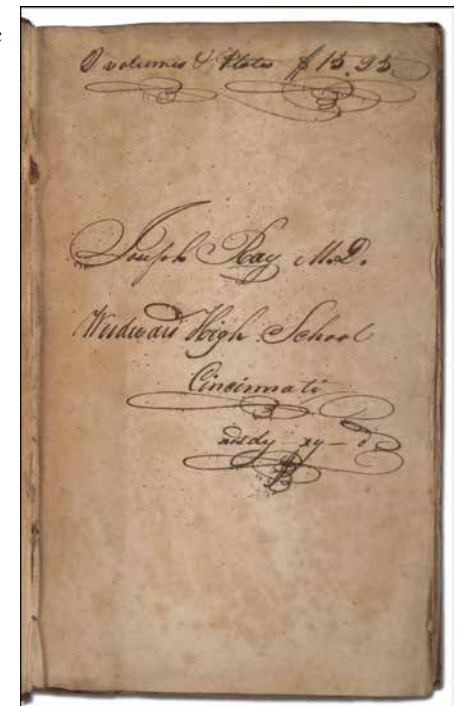 volumes & Plates $15.95
Joseph Ray M.D.
Woodward High School
Cincinnati